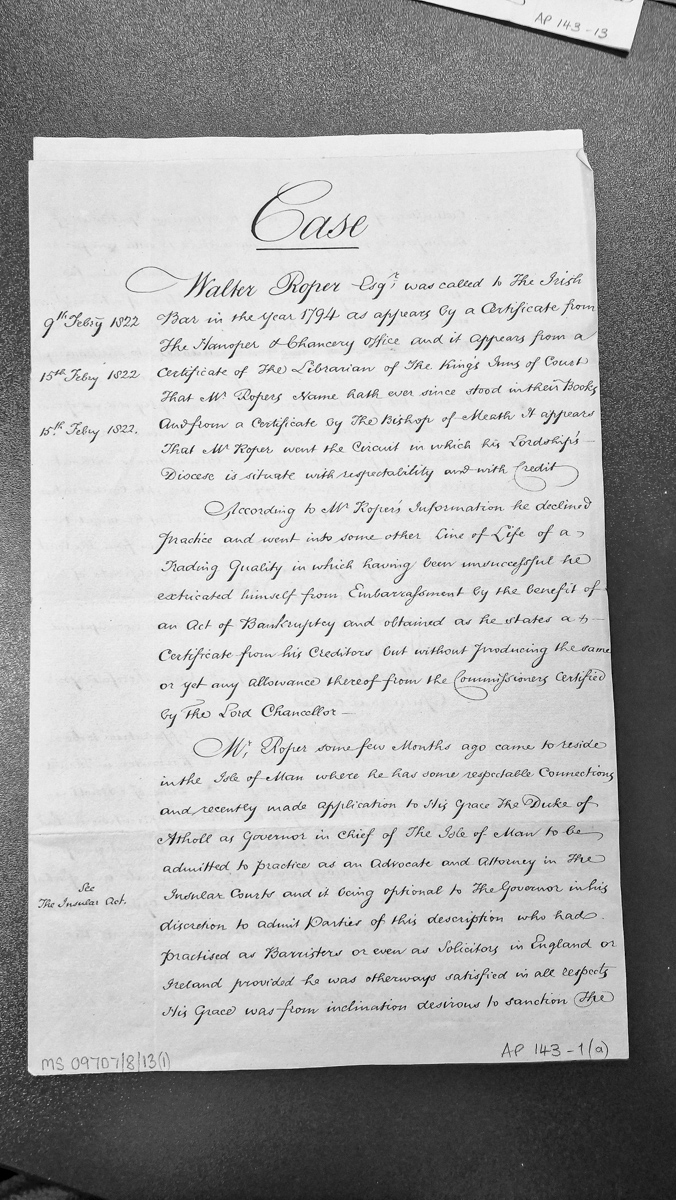 AP 143-13
Case
Walter Roper Esqr. was called to The Irish
9th Febry 1822
Bar in the Year 1794 as appears by a Certificate from
The Hanaper & Chancery Office and it appears from a
15th Febry 1822
Certificate of The Librarian of The King's Inns of Court
That Mr. Ropers Name hath ever since stood in their Books
15th Febry 1822.
And from a Certificate by The Bishop of Meath It appears
That Mr. Roper went the Circuit in which his Lordship's
Diocese is situate with respectability and with Credit
According to Mr. Roper's Information he declined
practice and went into some other Line of Life of a
Trading Quality in which having been unsuccessful he
extricated himself from Embarrassment by the benefit of
an Act of Bankruptcy and obtained as he states a
Certificate from his Creditors but without producing the same
or yet any allowance thereof from the Commissioners Certified
by The Lord Chancellor —
Mr. Roper some few Months ago came to reside
in the Isle of Man where he has some respectable Connections
and recently made application to His Grace The Duke of
Atholl as Governor in Chief of The Isle of Man to be
admitted to practice as an Advocate and Attorney in The
See
The Insular Act.
Insular Courts and it being optional to The Governor in his
discretion to admit Parties of this description who had
practised as Barristers or even as Solicitors in England or
Ireland provided he was otherways satisfied in all respects
His Grace was from inclination desirous to sanction The
MS 09707/8/13(1)
AP 143-1(a)